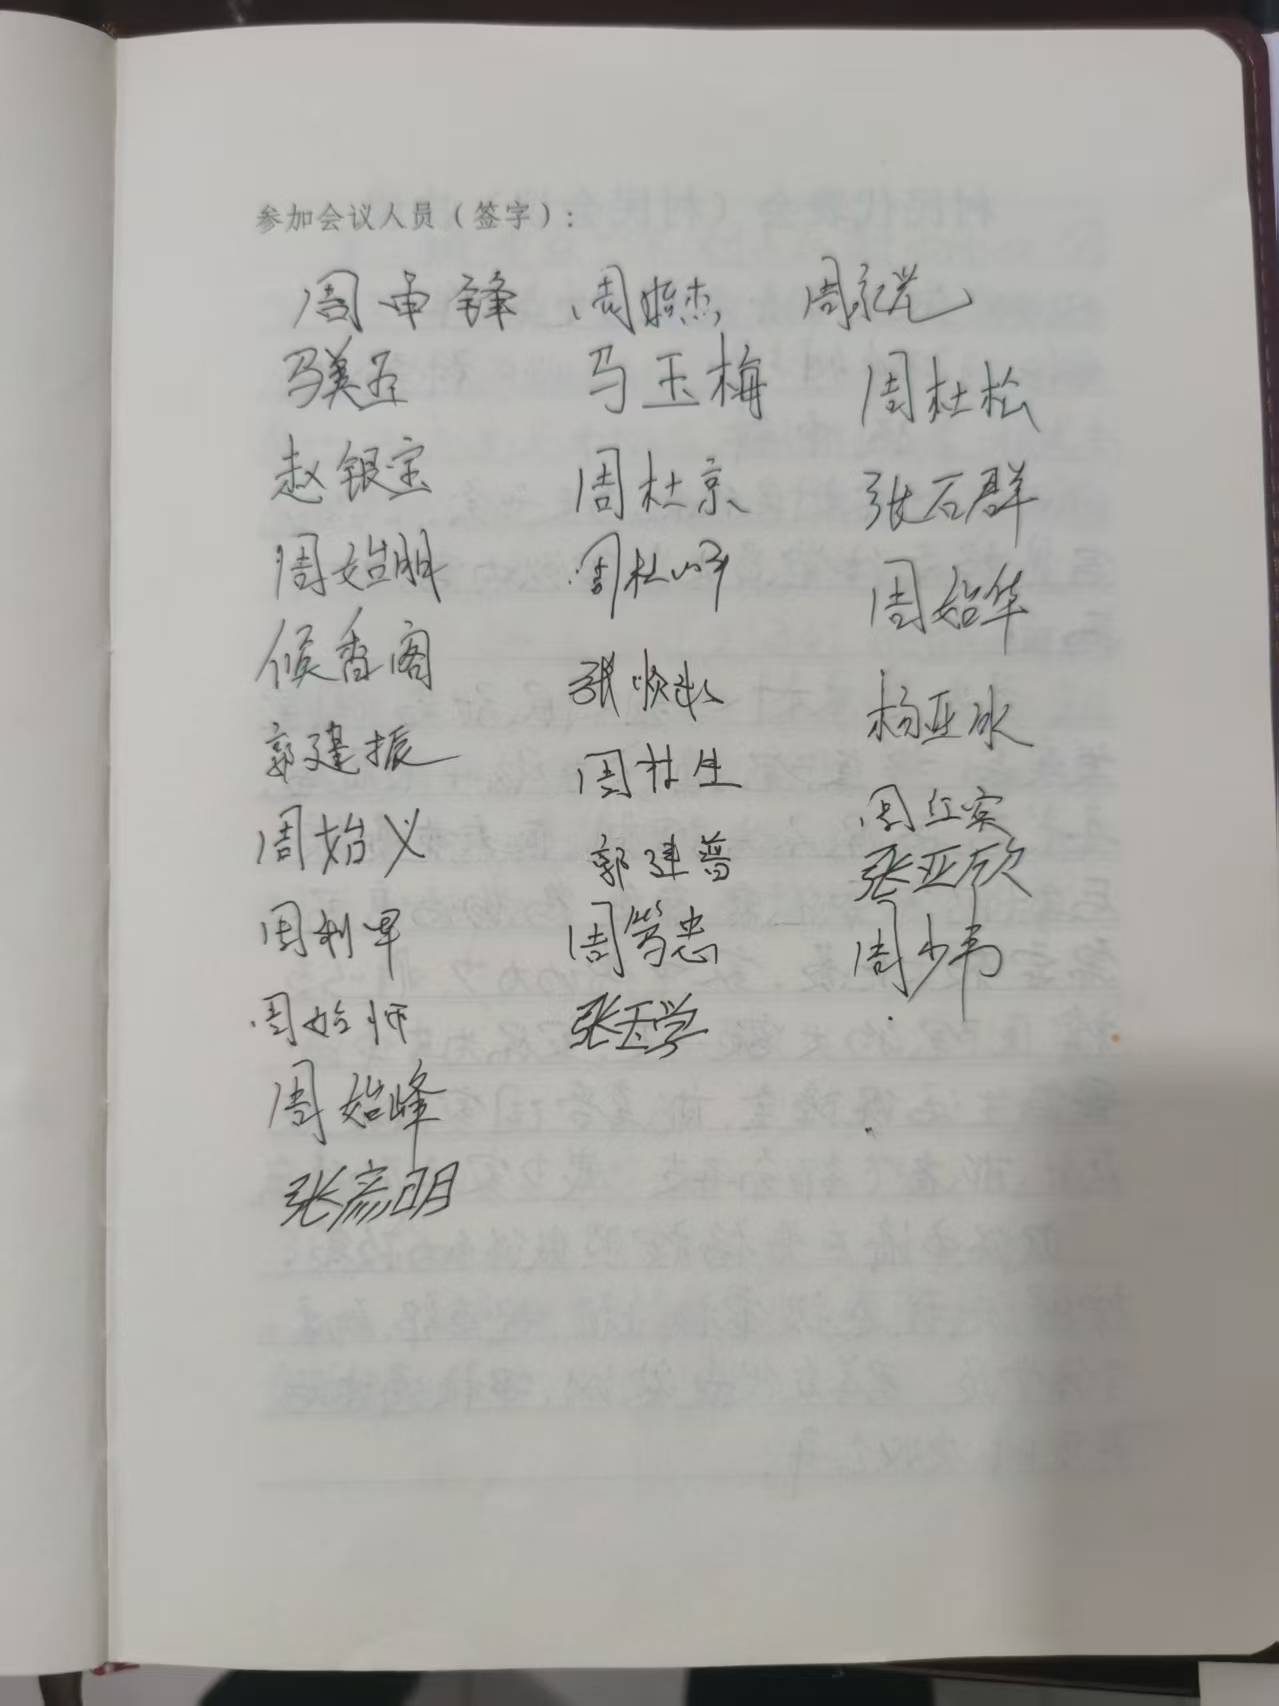 参加会议人员（签字）：
周申锋 周 杰 周 党
马美 马玉梅 周杜松
赵银宝 周杜京 张石群
周始明 周杜 周始华
候香阁 张 杨亚冰
郭建振 周杜生 周红宾
周始义 郭建普 张亚欣
周利 周笃忠 周少韦
周始师 张玉学
周始峰
张彦明